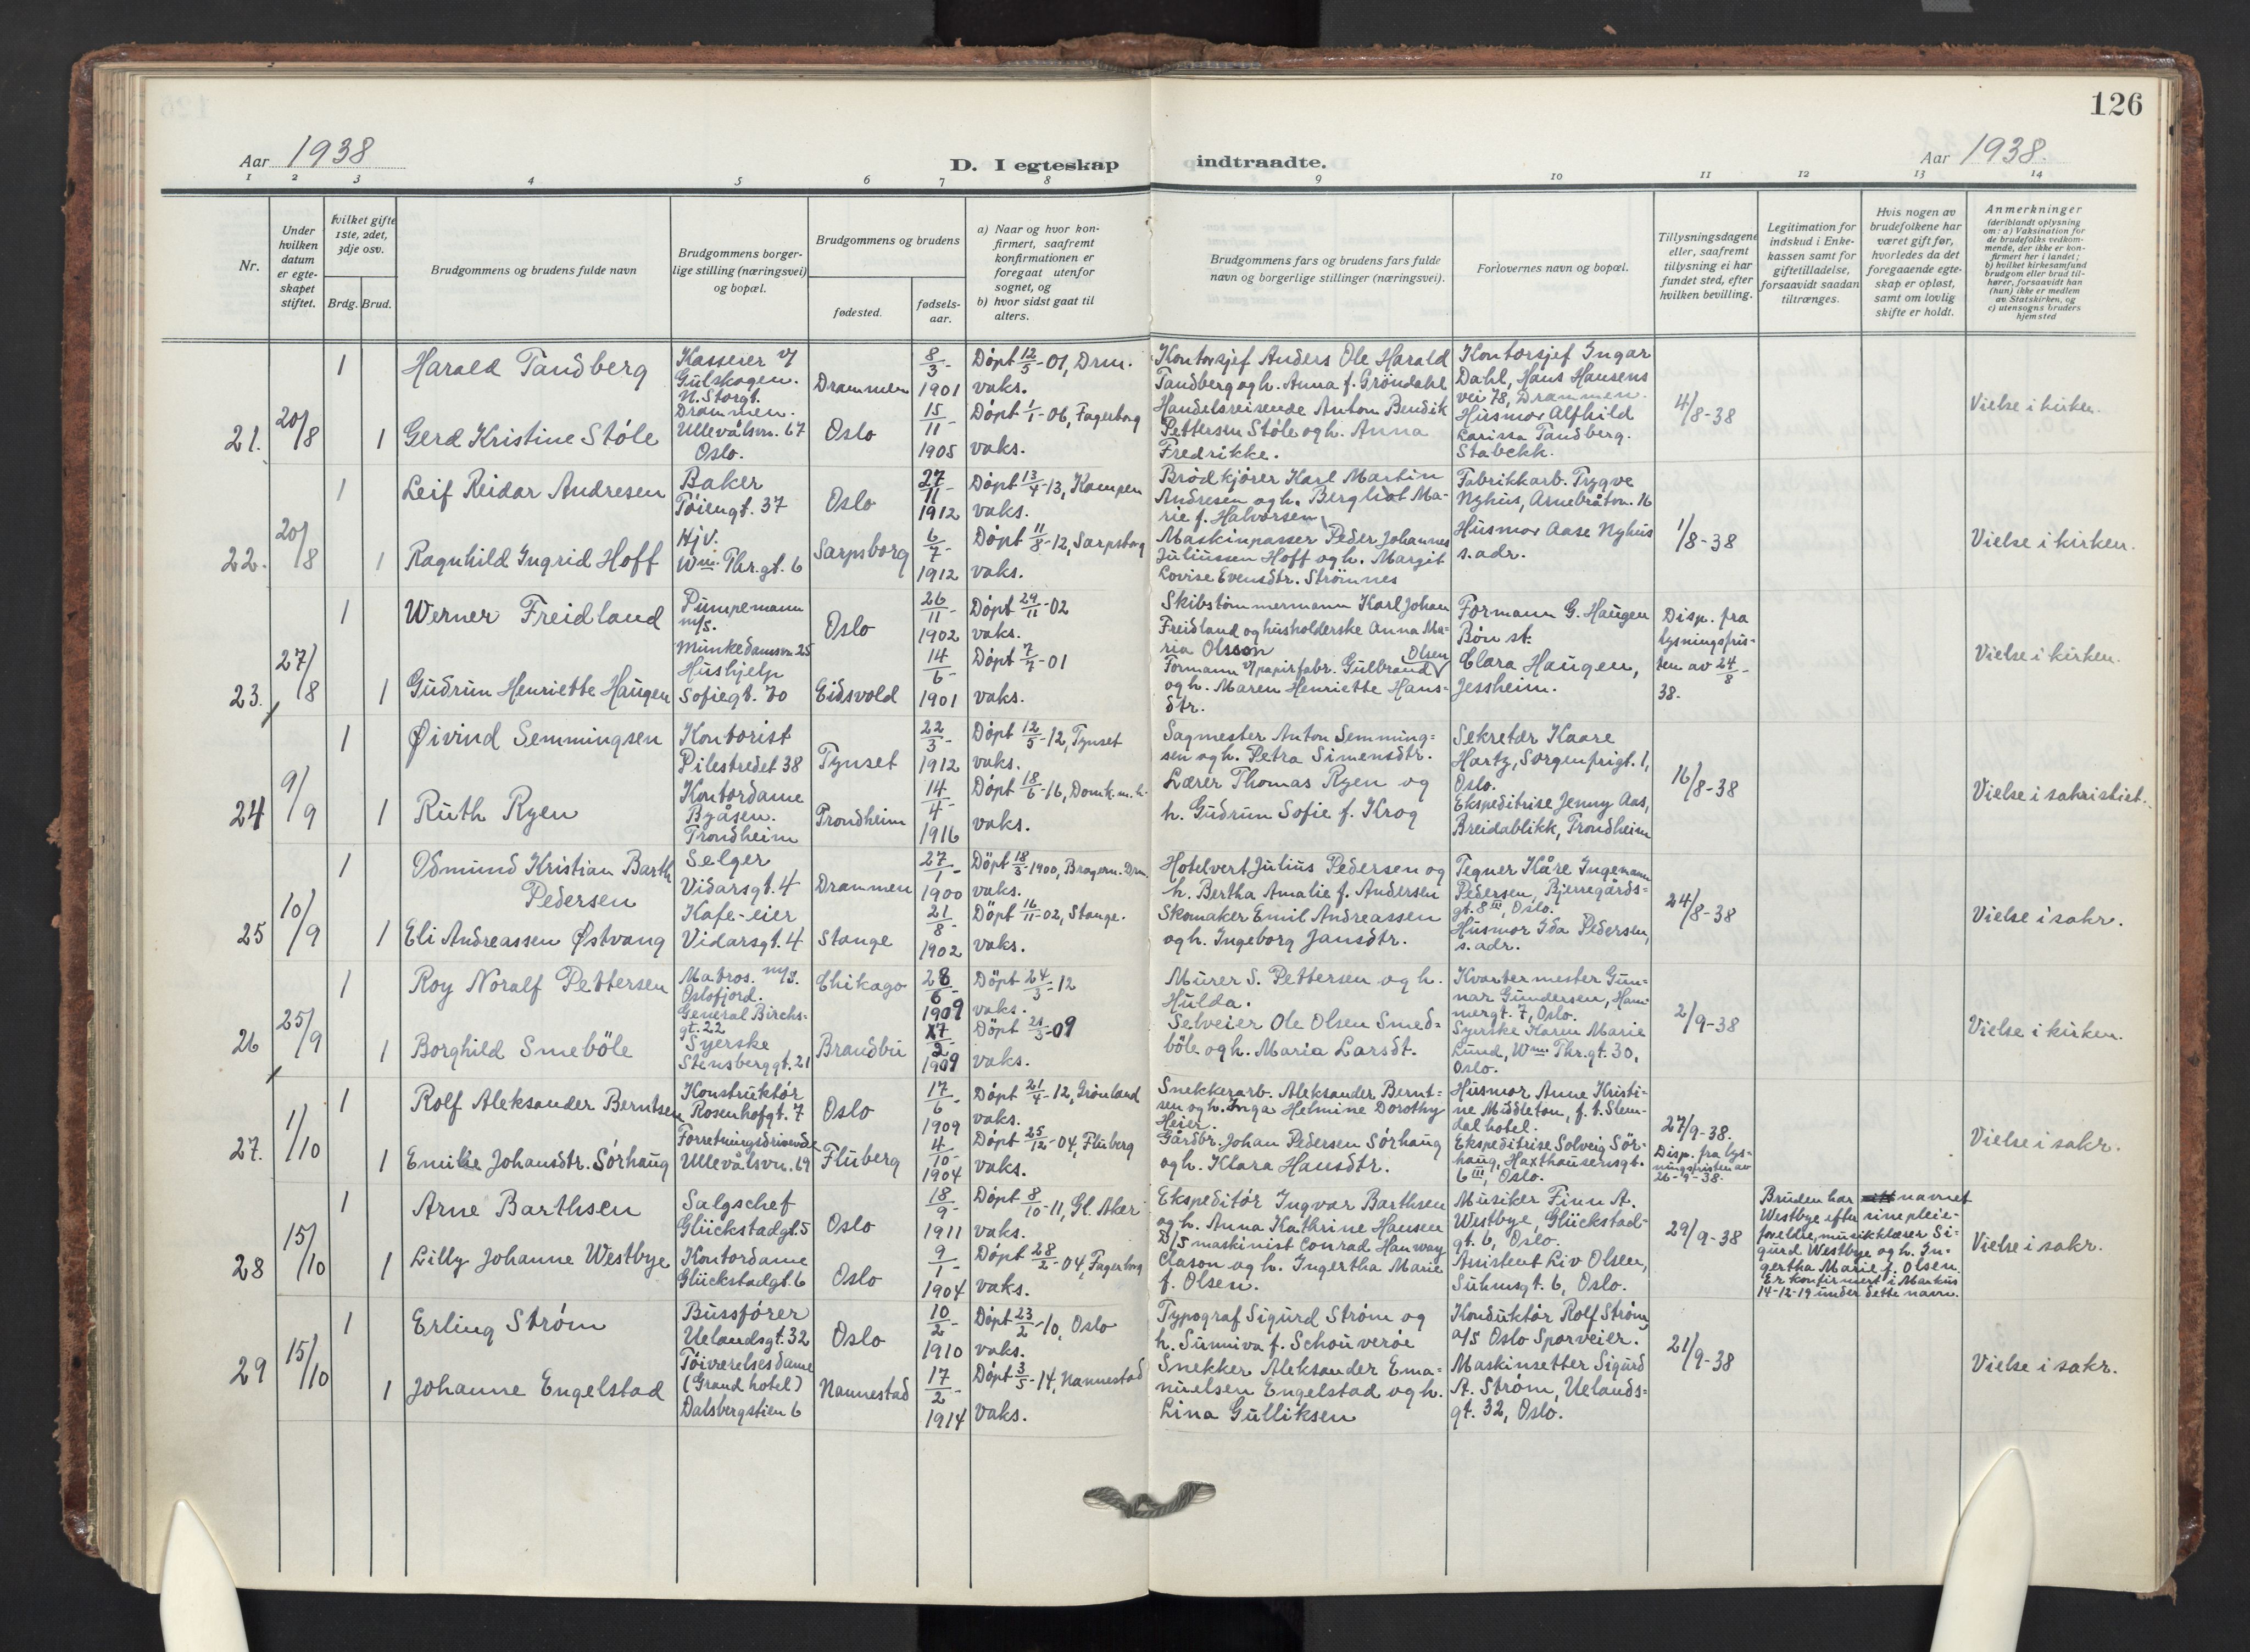 126
Aar 1938
D. I egteskap indtraadte.
Aar 1938.
1 2 3 4 5 6 7 8 9 10 11 12 13 14
Nr.
Under
hvilken
datum
er egte-
skapet
stiftet.
hvilket gifte
1ste, 2det,
3dje osv.
Brdg. Brud.
Brudgommens og brudens fulde navn
Brudgommens borger-
lige stilling (næringsvei)
og bopæl.
Brudgommens og brudens
fødested.
fødsels-
aar.
a) Naar og hvor kon-
firmert, saafremt
konfirmationen er
foregaat utenfor
sognet, og
b) hvor sidst gaat til
alters.
Brudgommens fars og brudens fars fulde
navn og borgerlige stillinger (næringsvei).
Forlovernes navn og bopæl.
Tillysningsdagene
eller, saafremt
tillysning ei har
fundet sted, efter
hvilken bevilling.
Legitimation for
indskud i Enke-
kassen samt for
giftetilladelse,
forsaavidt saadan
tiltrænges.
Hvis nogen av
brudefolkene har
været gift før,
hvorledes da det
foregaaende egte-
skap er opløst,
samt om lovlig
skifte er holdt.
Anmerkninger
(deriblandt oplysning
om: a) Vaksination for
de brudefolks vedkom-
mende, der ikke er kon-
firmert her i landet;
b) hvilket kirkesamfund
brudgom eller brud til-
hører, forsaavidt han
(hun) ikke er medlem
av Statskirken, og
c) utensogns bruders
hjemsted
21. 20/8
1
Harald Tandberg
Kasserer v/
Gulskogen.
N. Storgt.
Drammen.
Drammen
8/3-
1901
Döpt 12/5-01, Drm.
vaks.
Kontorsjef Anders Ole Harald
Tandberg og h. Anna f. Gröndahl
Kontorsjef Ingar
Dahl, Hans Hansens
vei 78, Drammen.
4/8-38
Vielse i kirken.
1
Gerd Kristine Støle
Ullevålsvn. 67
Oslo.
Oslo
15/11-
1905
Döpt 1/1-06, Fagerborg
vaks.
Handelsreisende Anton Bendik
Pettersen Støle og h. Anna
Fredrikke.
Husmor Alfhild
Larissa Tandberg.
Stabekk.
22. 20/8
1
Leif Reidar Andresen
Baker
Töiengt. 37
Oslo
27/11-
1912
Döpt 13/4-13, Kampen
vaks.
Brödkjörer Karl Martin
Andresen og h. Bergliot Ma-
rie f. Halvorsen
Fabrikkarb. Trygve
Nyhus, Arnebråtvn. 16
1/8-38
Vielse i kirken.
1
Ragnhild Ingrid Hoff
Hjv.
Wm. Thr.gt. 6
Sarpsborg
6/7-
1912
Döpt 11/8-12, Sarpsborg
vaks.
Maskinpasser Peder Johannes
Juliussen Hoff og h. Margit
Lovise Evensdtr. Strömnes
Husmor Aase Nyhus
s. adr.
23. 27/8
1
Werner Freidland
Pumpemann
m/s.
Munkedamsvn 25
Oslo
26/11-
1902
Döpt 29/11-02
vaks.
Skibstömmermann Karl Johan
Freidland og husholderske Anna Ma-
ria Olsson
Formann G. Haugen
Bön st.
Disp. fra
lysningsfris-
ten av 24/8-
38.
Vielse i kirken.
1
Gudrun Henriette Haugen
Hushjelp
Sofiegt. 70
Eidsvold
14/6-
1901
Döpt 7/7-01
vaks.
Formann v/ papirfabr. Gulbrand Olsen
og h. Maren Henriette Hans-
dtr.
Clara Haugen,
Jessheim.
24 9/9
1
Øivind Semmingsen
Kontorist
Pilestredet 38
Tynset
22/3-
1912
Döpt 12/5-12, Tynset
vaks.
Sagmester Anton Semming=
sen og h. Petra Simensdtr.
Sekretær Kaare
Hartz, Sorgenfrigt. 1,
Oslo.
16/8-38
Vielse i sakristiet.
1
Ruth Ryen
Kontordame
Byåsen.
Trondheim
Trondheim
14/4-
1916
Döpt 18/6-16, Domk. m. h.
vaks.
Lærer Thomas Ryen og
h. Gudrun Sofie f. Krog
Ekspeditrise Jenny Aas,
Breidablikk, Trondheim
25 10/9
1
Odmund Kristian Barth
Pedersen
Selger
Vidarsgt. 4
Drammen
27/1-
1900
Döpt 18/3-1900, Bragern. Drm.
vaks.
Hotelvert Julius Pedersen og
h. Bertha Amalie f. Andersen
Tegner Kåre Ingemann
Pedersen, Bjerregårds=
gt. 8 III, Oslo.
24/8-38
Vielse i sakr.
1
Eli Andreassen Østvang
Kafe-eier
Vidarsgt. 4
Stange
21/8-
1902
Döpt 16/11-02, Stange.
vaks.
Skomaker Emil Andreassen
og h. Ingeborg Jansdtr.
Husmor Ida Pedersen,
s. adr.
26 25/9
1
Roy Noralf Pettersen
Matros. m/s.
Oslofjord.
General Birchs-
gt. 22
Chikago
28/6-
1909
Döpt 24/3-12
vaks.
Murer S. Pettersen og h.
Hulda.
Kvartermester Gun-
nar Gundersen, Ham-
mergt. 7, Oslo.
2/9-38
Vielse i kirken.
1
Borghild Smeböle
Syerske
Stensberggt. 21
Brandbu
17/2-
1909
Döpt 21/3-09
vaks.
Selveier Ole Olsen Smed=
böle og h. Maria Larsdt.
Syerske Karen Marie
Lund, Wm. Thr.gt. 30,
Oslo.
27. 1/10
1
Rolf Aleksander Berntsen
Konstruktör
Rosenhofgt. 7
Oslo
17/6-
1909
Döpt 21/4-12, Grönland
vaks.
Snekkerarb. Aleksander Bernt=
sen og h. Inga Helmine Dorothy
Heier.
Husmor Anne Kristi-
ne Middleton, f. t. Slem-
dal hotel.
27/9-38.
Disp. fra lys-
ningsfristen av
26-9-38.
Vielse i sakr.
1
Emilie Johansdtr. Sörhaug
Forretningsdrivende
Ullevålsvn. 69
Fluberg
4/10-
1904
Döpt 25/12-04, Fluberg
vaks.
Gårdbr. Johan Pedersen Sörhaug
og h. Klara Hansdtr.
Ekspeditrise Solveig Sör-
haug, Haxthausensgt.
6 III, Oslo.
28 15/10
1
Arne Barthsen
Salgschef
Glückstadgt. 5
Oslo
18/9-
1911
Döpt 8/10-11, Gl. Aker
vaks.
Ekspeditör Ingvar Barthsen
og h. Anna Kathrine Hansen
Musiker Finn A.
Westbye, Glückstad-
gt. 6, Oslo.
29/9-38
Bruden har navnet
Westbye efter sine pleie-
foreldre, musikklærer Si-
gurd Westbye og h. In-
gertha Marie f. Olsen.
Er konfirmert i Markus
14-12-19 under dette navn.
Vielse i sakr.
1
Lilly Johanne Westbye
Kontordame
Glückstadgt. 6
Oslo
9/1-
1904
Döpt 28/2-04, Fagerborg
vaks.
D/S maskinist Conrad Hanway
Clason og h. Ingertha Marie
f. Olsen.
Assistent Liv Olsen,
Suhmsgt. 6, Oslo.
29 15/10
1
Erling Ström
Bussförer
Uelandsgt. 32
Oslo
10/2-
1910
Döpt 23/2-10, Oslo
vaks.
Typograf Sigurd Ström og
h. Sunniva f. Schouveröe
Konduktör Rolf Ström,
a/s Oslo Sporveier.
21/9-38
Vielse i sakr.
1
Johanne Engelstad
Töiverelsesdame
(Grand hotel)
Dalsbergstien 6
Nannestad
17/2-
1914
Döpt 3/5-14, Nannestad
vaks.
Snekker Aleksander Ema=
nuelsen Engelstad og h.
Lina Gulliksen
Maskinsetter Sigurd
A. Ström, Uelands=
gt. 32, Oslo.